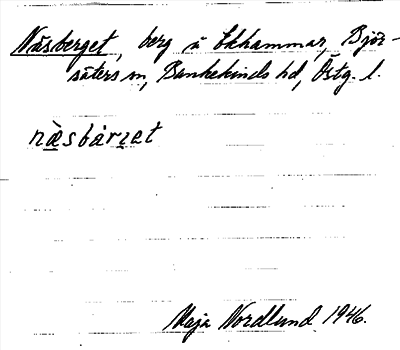 Näsberget, berg å Ekhammar, Björ-
säters sn, Bankekinds hd, Östg. l.
næ̀sbàrɪet
Maja Nordlund 1946.